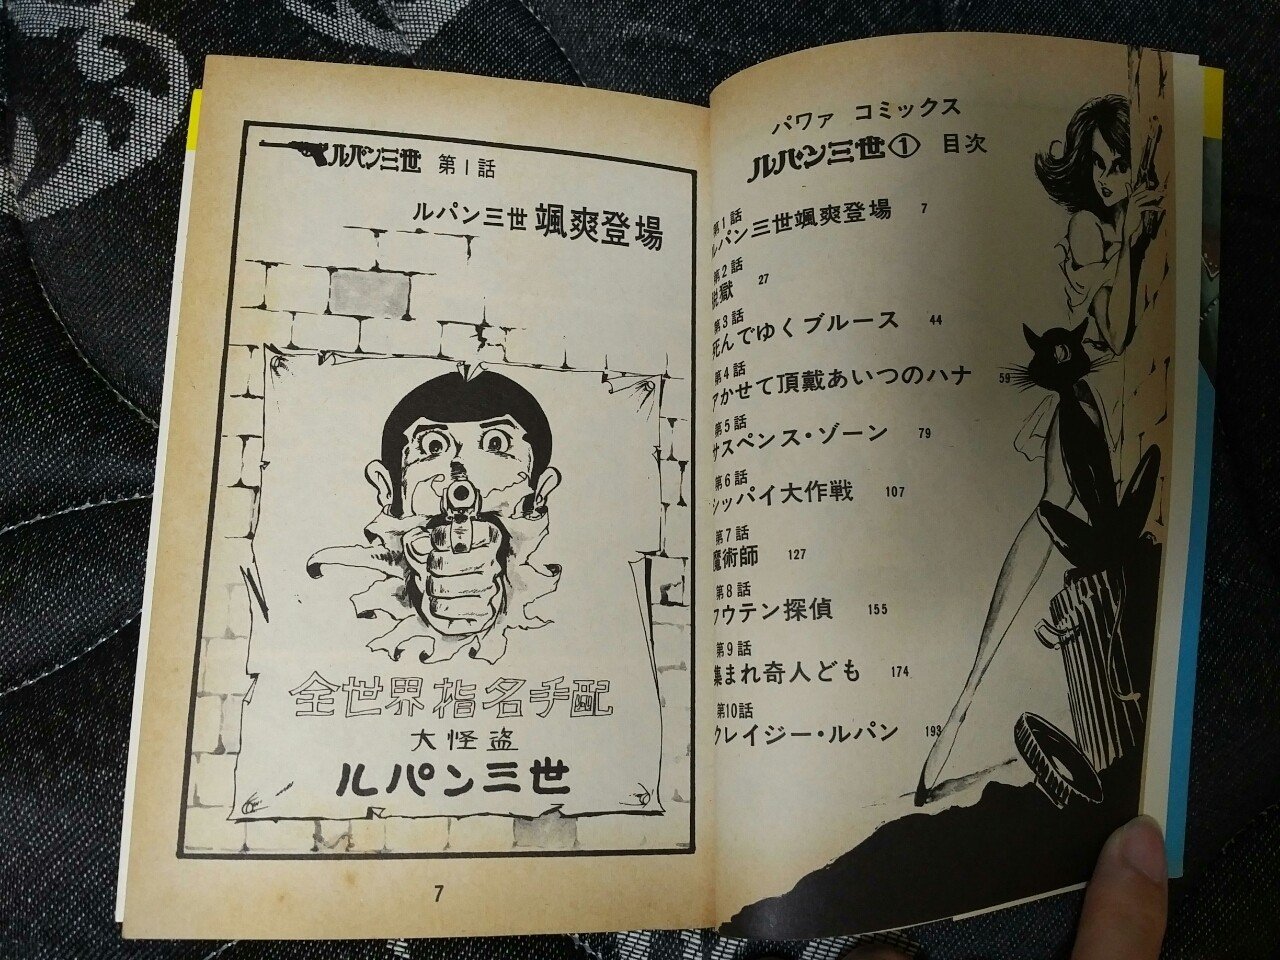 パワァ コミックス
ルパン三世① 目次
第1話
ルパン三世颯爽登場 7
第2話
脱獄 27
第3話
死んでゆくブルース 44
第4話
アかせて頂戴あいつのハナ 59
第5話
サスペンス・ゾーン 79
第6話
シッパイ大作戦 107
第7話
魔術師 127
第8話
フウテン探偵 155
第9話
集まれ奇人ども 174
第10話
クレイジー・ルパン 193
ルパン三世 第1話
ルパン三世 颯爽登場
全世界指名手配
大怪盗
ルパン三世
7